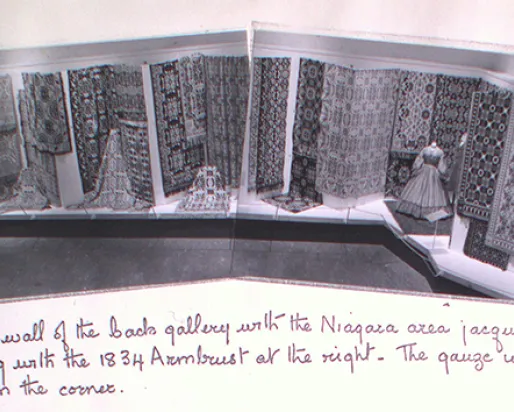 wall of the back gallery with the Niagara area jacqu
with the 1834 Armbrust at the right - The gauze
n the corner.